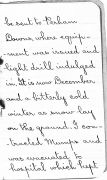 be sent to Perham
Downs, where equip-
-ment was issued and
light drill indulged
in. It is now December
and a bitterly cold
winter as snow lay
on the ground. I con-
tracted Mumps and
was evacuated to
hospital which kept